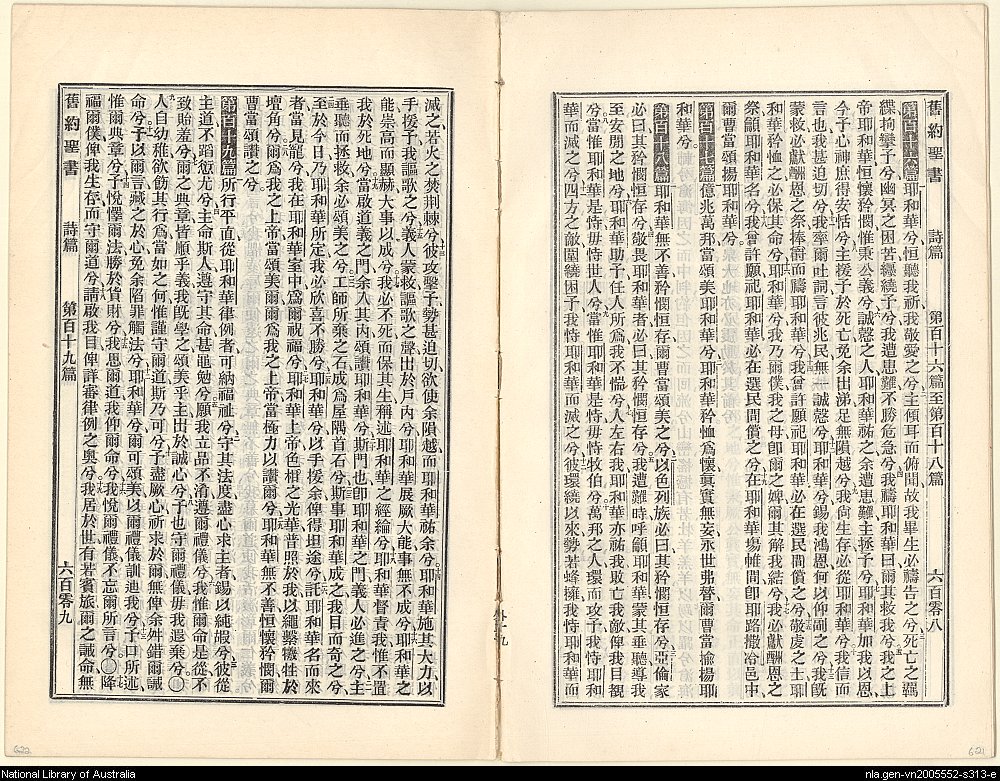 舊約聖書 詩篇 第百十六篇至第百十八篇 六百零八
第百十六篇 耶和華兮恒聽我祈我敬愛之兮主傾耳而俯聞故我畢生必禱告之兮死亡之羈
絏拘攣予兮幽冥之困苦纏繞予兮我遭患難不勝危急兮我禱耶和華曰爾其救我兮我之上
帝耶和華恒懷矜憫惟秉公義兮誠慤之人耶和華祐之余遭患難主拯予兮耶和華加我以恩
今予心神庶得安恬兮主援予於死亡免余出涕足無隕越兮我尙生存必從耶和華兮我信而
言也我甚迫切兮我率爾吐詞言彼兆民無一誠慤兮耶和華兮錫我鴻恩何以仰副之兮我旣
蒙救必獻酬恩之祭捧樽而禱耶和華兮我曾許願祀耶和華必在選民間償之兮敬虔之士耶
和華矜恤之必保其命兮耶和華兮我乃爾僕我之母卽爾之婢爾其解我結兮我必獻酬恩之
祭籲耶和華名兮我曾許願祀耶和華必在選民間償之兮在耶和華場帷間卽耶路撒冷邑中
爾曹當頌揚耶和華兮
第百十七篇 億兆萬邦當頌美耶和華兮耶和華矜恤爲懷眞實無妄永世弗替爾曹當揄揚耶
和華兮
第百十八篇 耶和華無不善矜憫恒存爾曹當頌美之兮以色列族必曰其矜憫恒存兮亞倫家
必曰其矜憫恒存兮敬畏耶和華者必曰其矜憫恒存兮我遭難時呼籲耶和華耶和華垂聽導我
至安閒之地兮耶和華助予任人所爲我不惴兮人左右我耶和華亦祐我敢亡我敵俾我目覩
兮當惟耶和華是恃毋恃世人兮當惟耶和華是恃毋恃牧伯兮萬邦之人環而攻予我恃耶和
華而滅之兮四方之敵圍繞困予我恃耶和華而滅之兮彼環繞以來勢若蜂擁我恃耶和華而
滅之若火之焚荆棘兮彼攻擊予勢甚迫切欲使余隕越而耶和華祐余兮耶和華施其大力以
手援予我謳歌之兮義人蒙救謳歌之聲出於戶內兮耶和華展厥大能事無不成兮耶和華之
能崇高而顯赫大事以成兮我必不死而保其生稱述耶和華之經綸兮耶和華督責我惟不置
我於死地兮當啟道義之門余入其內頌讚耶和華兮斯門也卽耶和華之門義人必進之兮主
垂聽而拯救余必頌美之兮工師所棄之石成爲屋隅首石兮斯事耶和華成之我目而奇之兮
至於今日乃耶和華所定我必欣喜不勝兮耶和華兮以手援余俾得坦途兮託耶和華名而來
者當見寵兮我在耶和華室中爲爾祝福兮耶和華上帝色相之光華普照於我以繩繫犧牲於
壇角兮爾爲我之上帝當頌美爾爾爲我之上帝當極力以讚爾兮耶和華無不善恒懷矜憫爾
曹當頌讚之兮
第百十九篇 所行平直從耶和華律例者可納福祉兮守其法度盡心求主者錫以純嘏兮彼從
主道不蹈愆尤兮主命斯人遵守其命甚黽勉兮願我立品不淆遵爾禮儀兮我惟爾命是從不
致貽羞兮爾之典章皆順乎義我旣學之頌美乎主出於誠心兮予也守爾禮儀毋我遐棄兮〇
人自幼稚欲飭其行爲當如之何惟謹守爾道斯乃可兮予盡厥心祈求於爾無俾余舛錯爾誡
命兮予以爾言藏之於心免余陷罪觸法兮耶和華兮爾可頌美以爾禮儀訓迪我兮予口所述
惟爾典章兮予悅懌爾法勝於貨財兮我思爾道我仰爾命兮我悅爾禮儀不忘爾所言兮〇降
福爾僕俾我生存而守爾道兮請啟我目俾詳審律例之奧兮我居於世有若賓旅爾之誡命無
舊約聖書 詩篇 第百十九篇 六百零九
National Library of Australia
nla.gen-vn2005552-s313-e
621
622